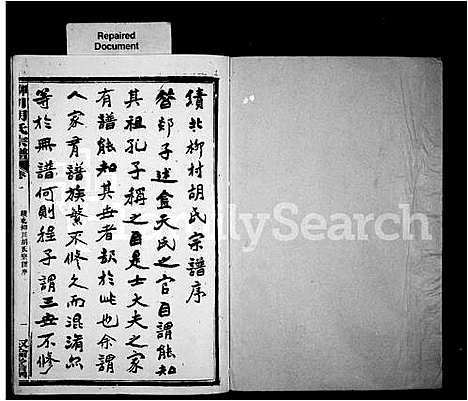 Repaired
Document
績北柳村胡氏宗譜序
昔郯子述金天氏之官自謂能知
其祖孔子稱之自是士大夫之家
有譜能知其世者郯於此也余謂
人家有譜族繁不修久而混淆與
等於無譜何則程子謂三世不修
胡氏宗譜
卷一
FamilySearch